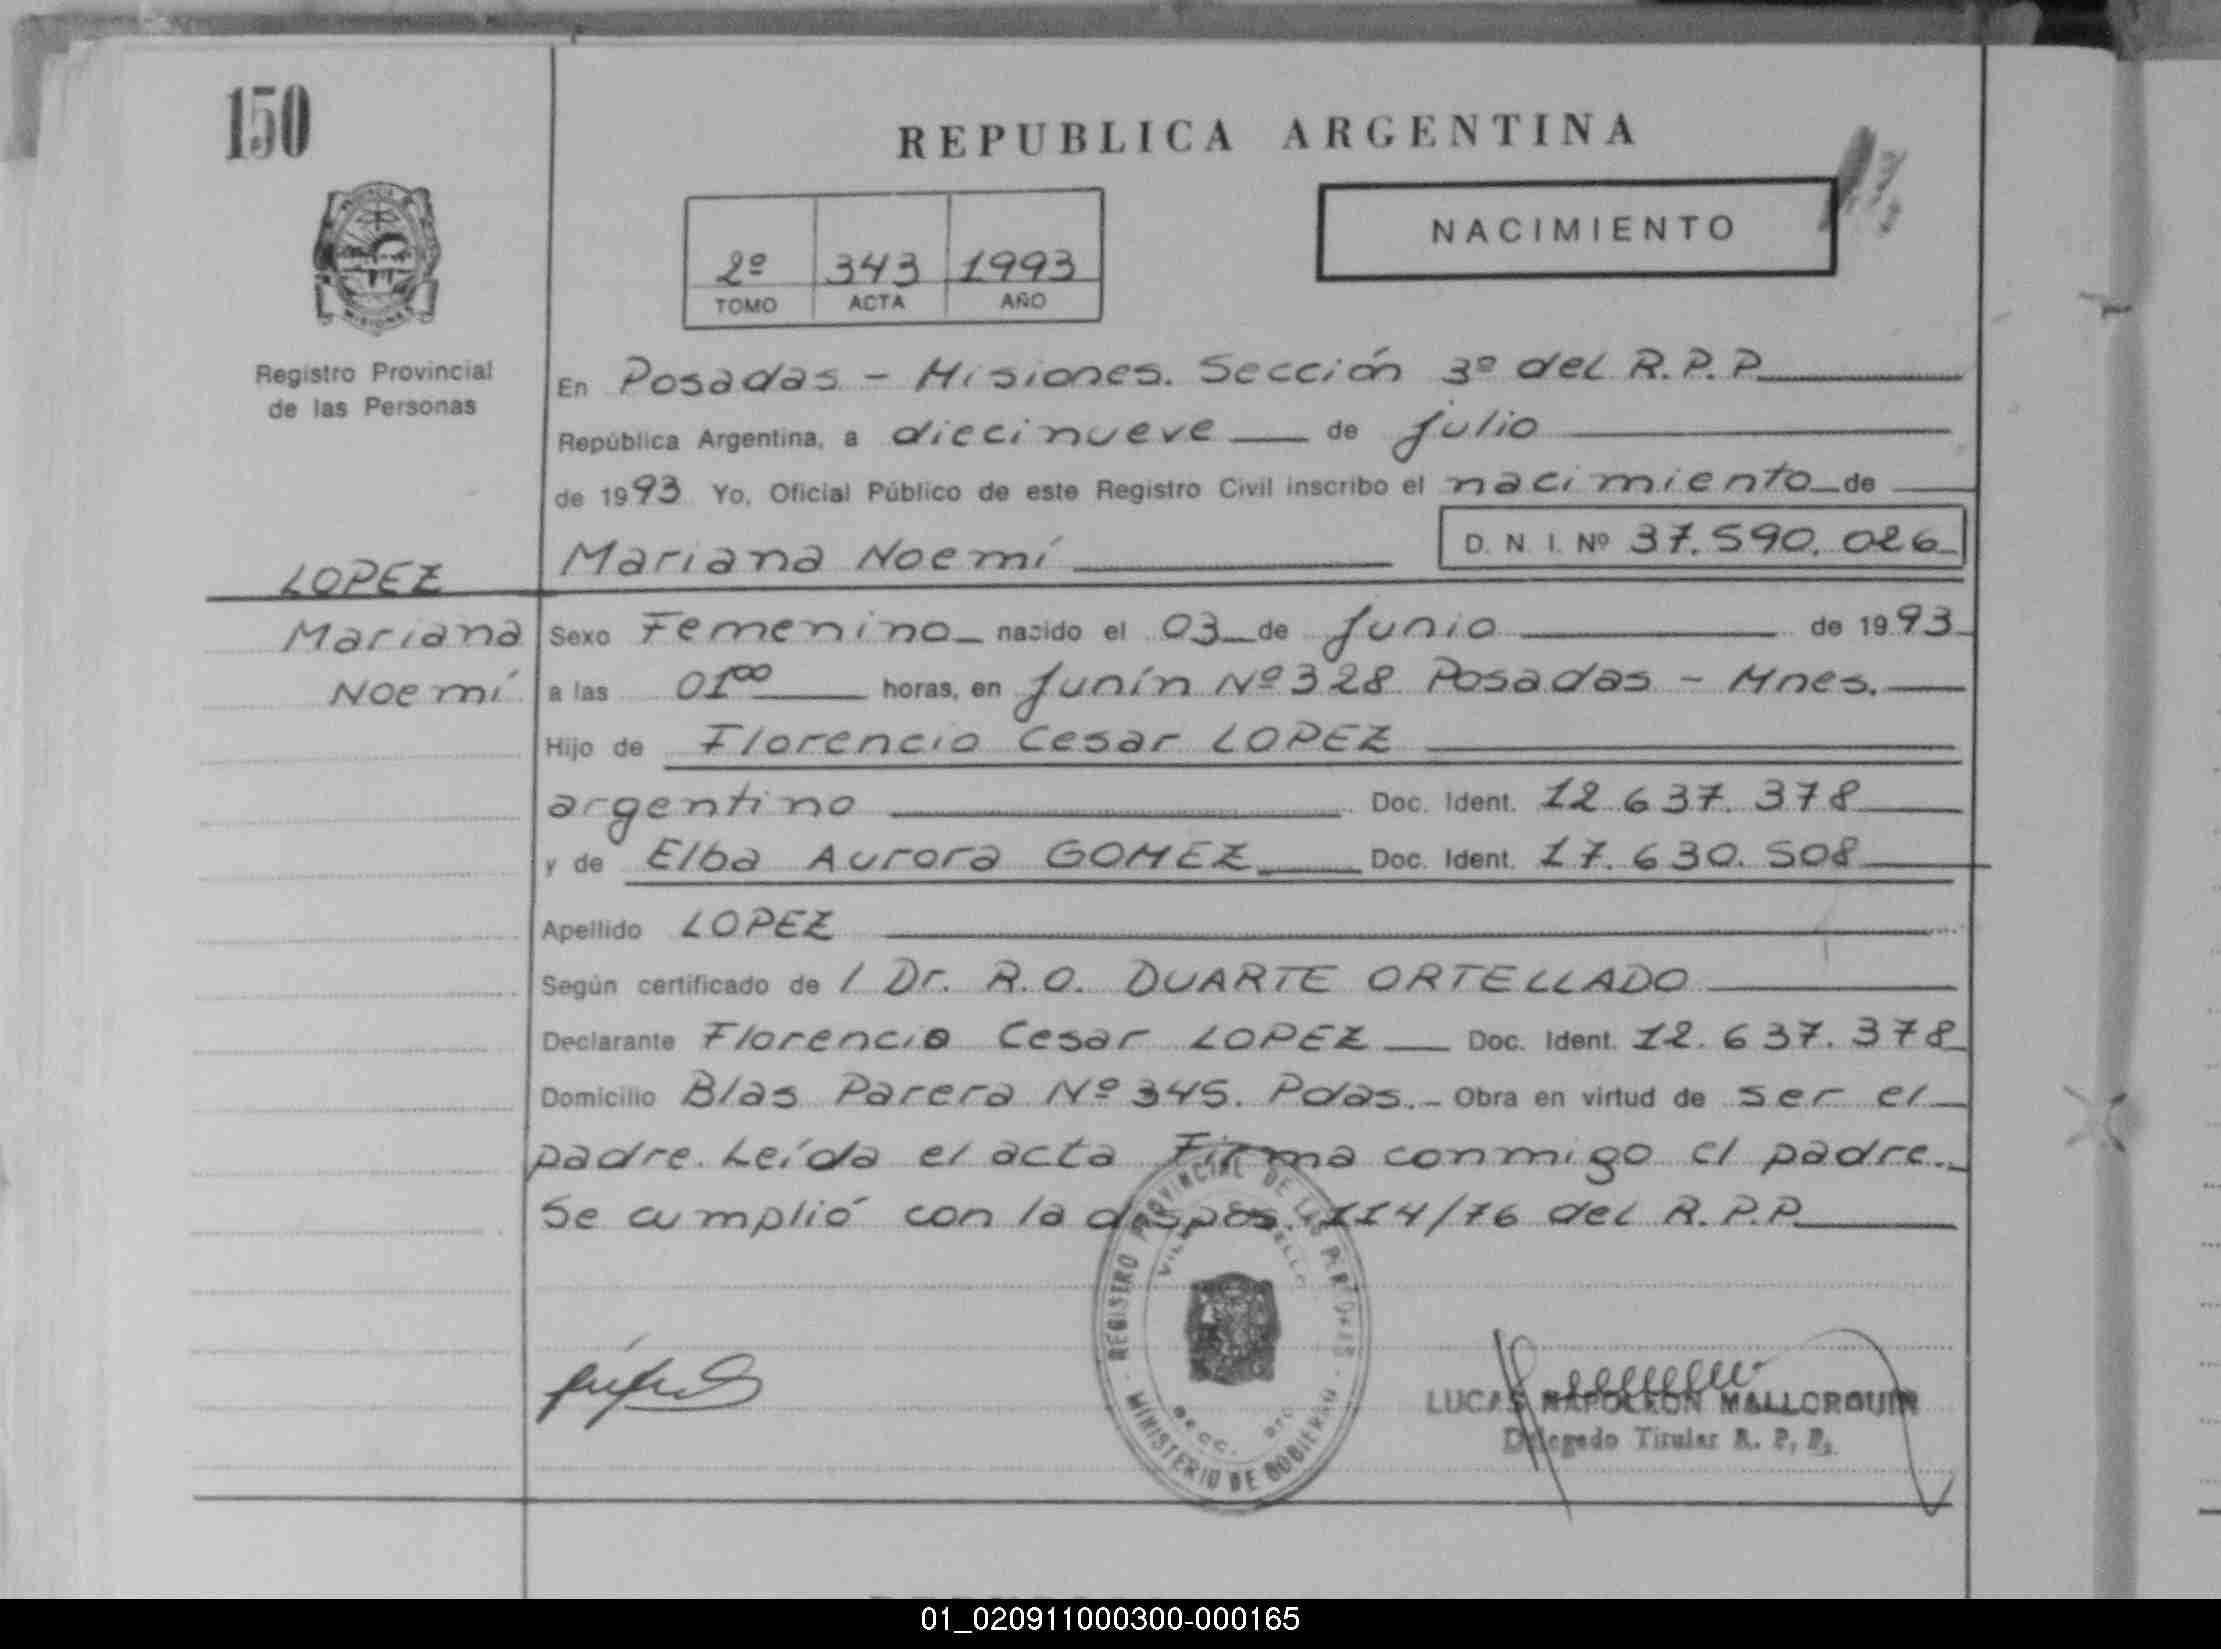 150
REPUBLICA ARGENTINA
NACIMIENTO
2º 343 1993
TOMO ACTA AÑO
MISIONES
Registro Provincial
de las Personas
En Posadas - Misiones. Sección 3º del R.P.P.
República Argentina, a diecinueve de julio
de 1993 Yo, Oficial Público de este Registro Civil inscribo el nacimiento de
Mariana Noemí D. N. I. Nº 37.590.026
LOPEZ
Mariana
Noemí
Sexo Femenino nacido el 03 de Junio de 1993
a las 01⁰⁰ horas, en Junín Nº 328 Posadas - Mnes.
Hijo de Florencio Cesar LOPEZ
argentino Doc. Ident. 12.637.378
y de Elba Aurora GOMEZ Doc. Ident. 17.630.508
Apellido LOPEZ
Según certificado de l Dr. R.O. DUARTE ORTELLADO
Declarante Florencio Cesar LOPEZ Doc. Ident. 12.637.378
Domicilio Blas Parera Nº 345. Pdas.- Obra en virtud de ser el
padre. Leída el acta Firma conmigo el padre.-
Se cumplió con la dispos. 114/76 del R.P.P.
REGISTRO PROVINCIAL DE LAS PERSONAS
SECC.
MINISTERIO DE GOBIERNO
LUCAS NAPOLEON MALLORQUIN
Delegado Titular R. P. P.
01_020911000300-000165